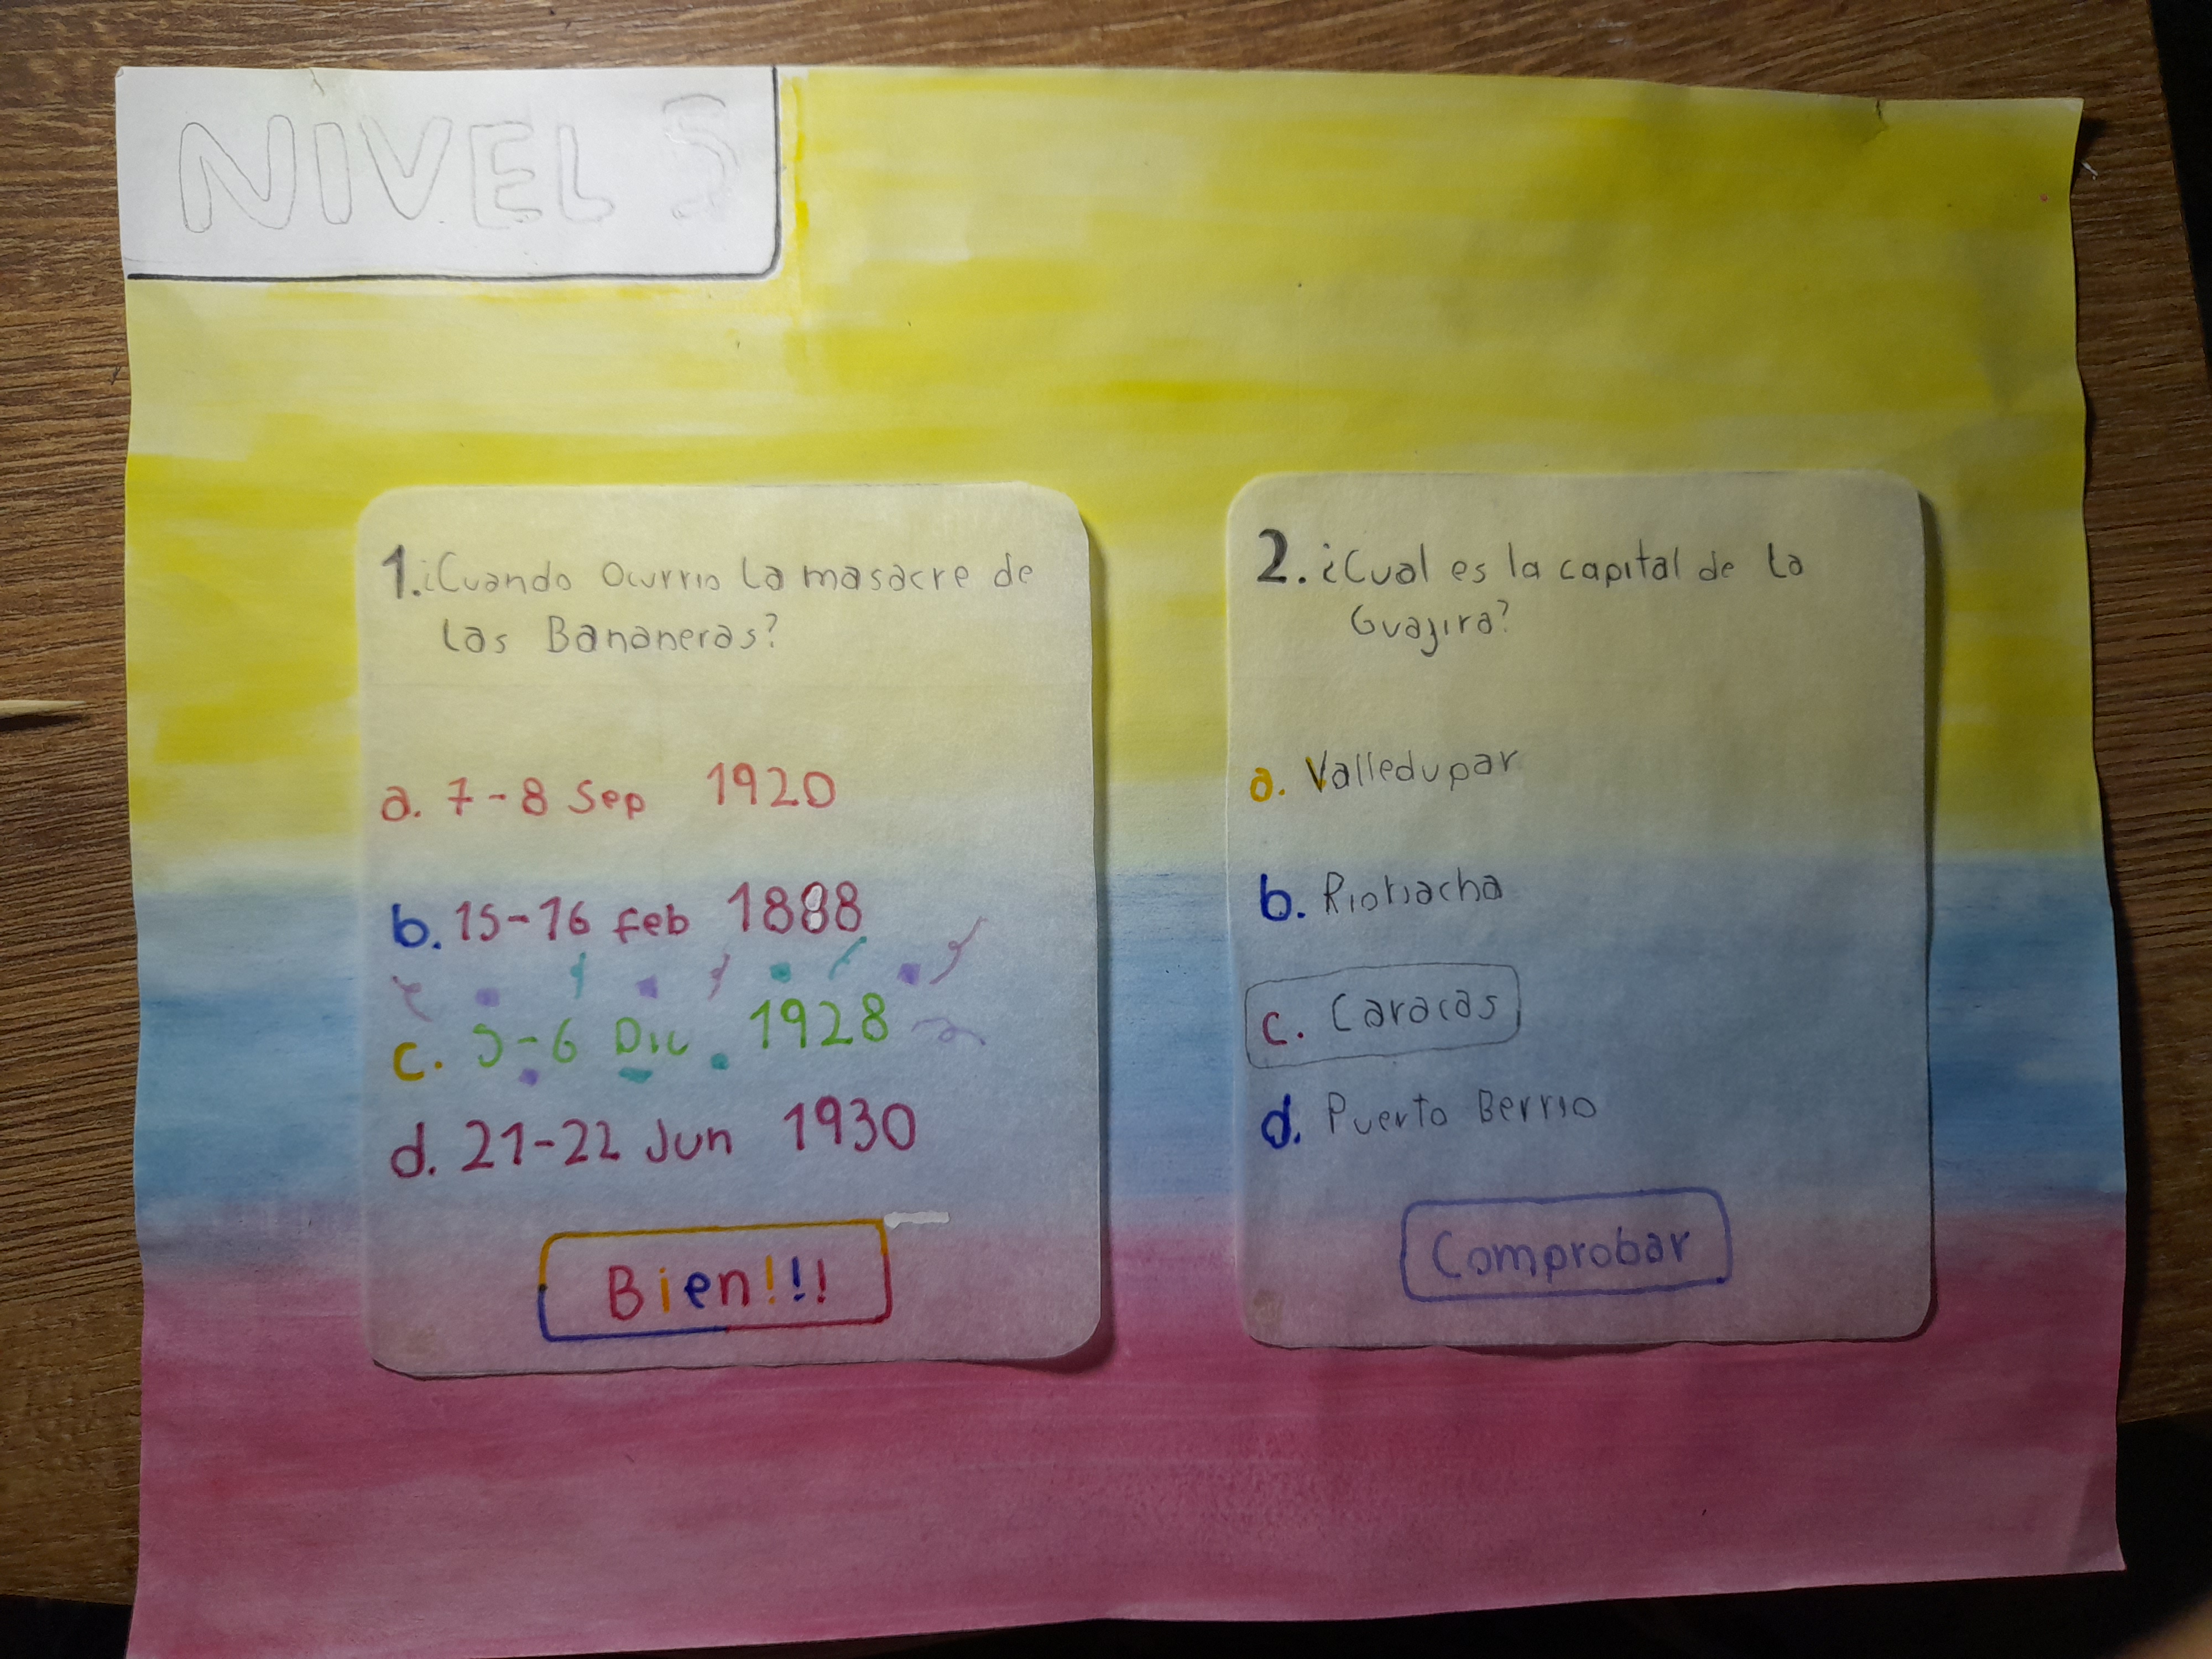 NIVEL 5
1. ¿Cuando Ocurrio la masacre de
las Bananeras?
a. 7-8 Sep 1920
b. 15-16 feb 1888
c. 5-6 Dic 1928
d. 21-22 Jun 1930
Bien!!!
2. ¿Cual es la capital de la
Guajira?
a. Valledupar
b. Riohacha
c. Caracas
d. Puerto Berrio
Comprobar